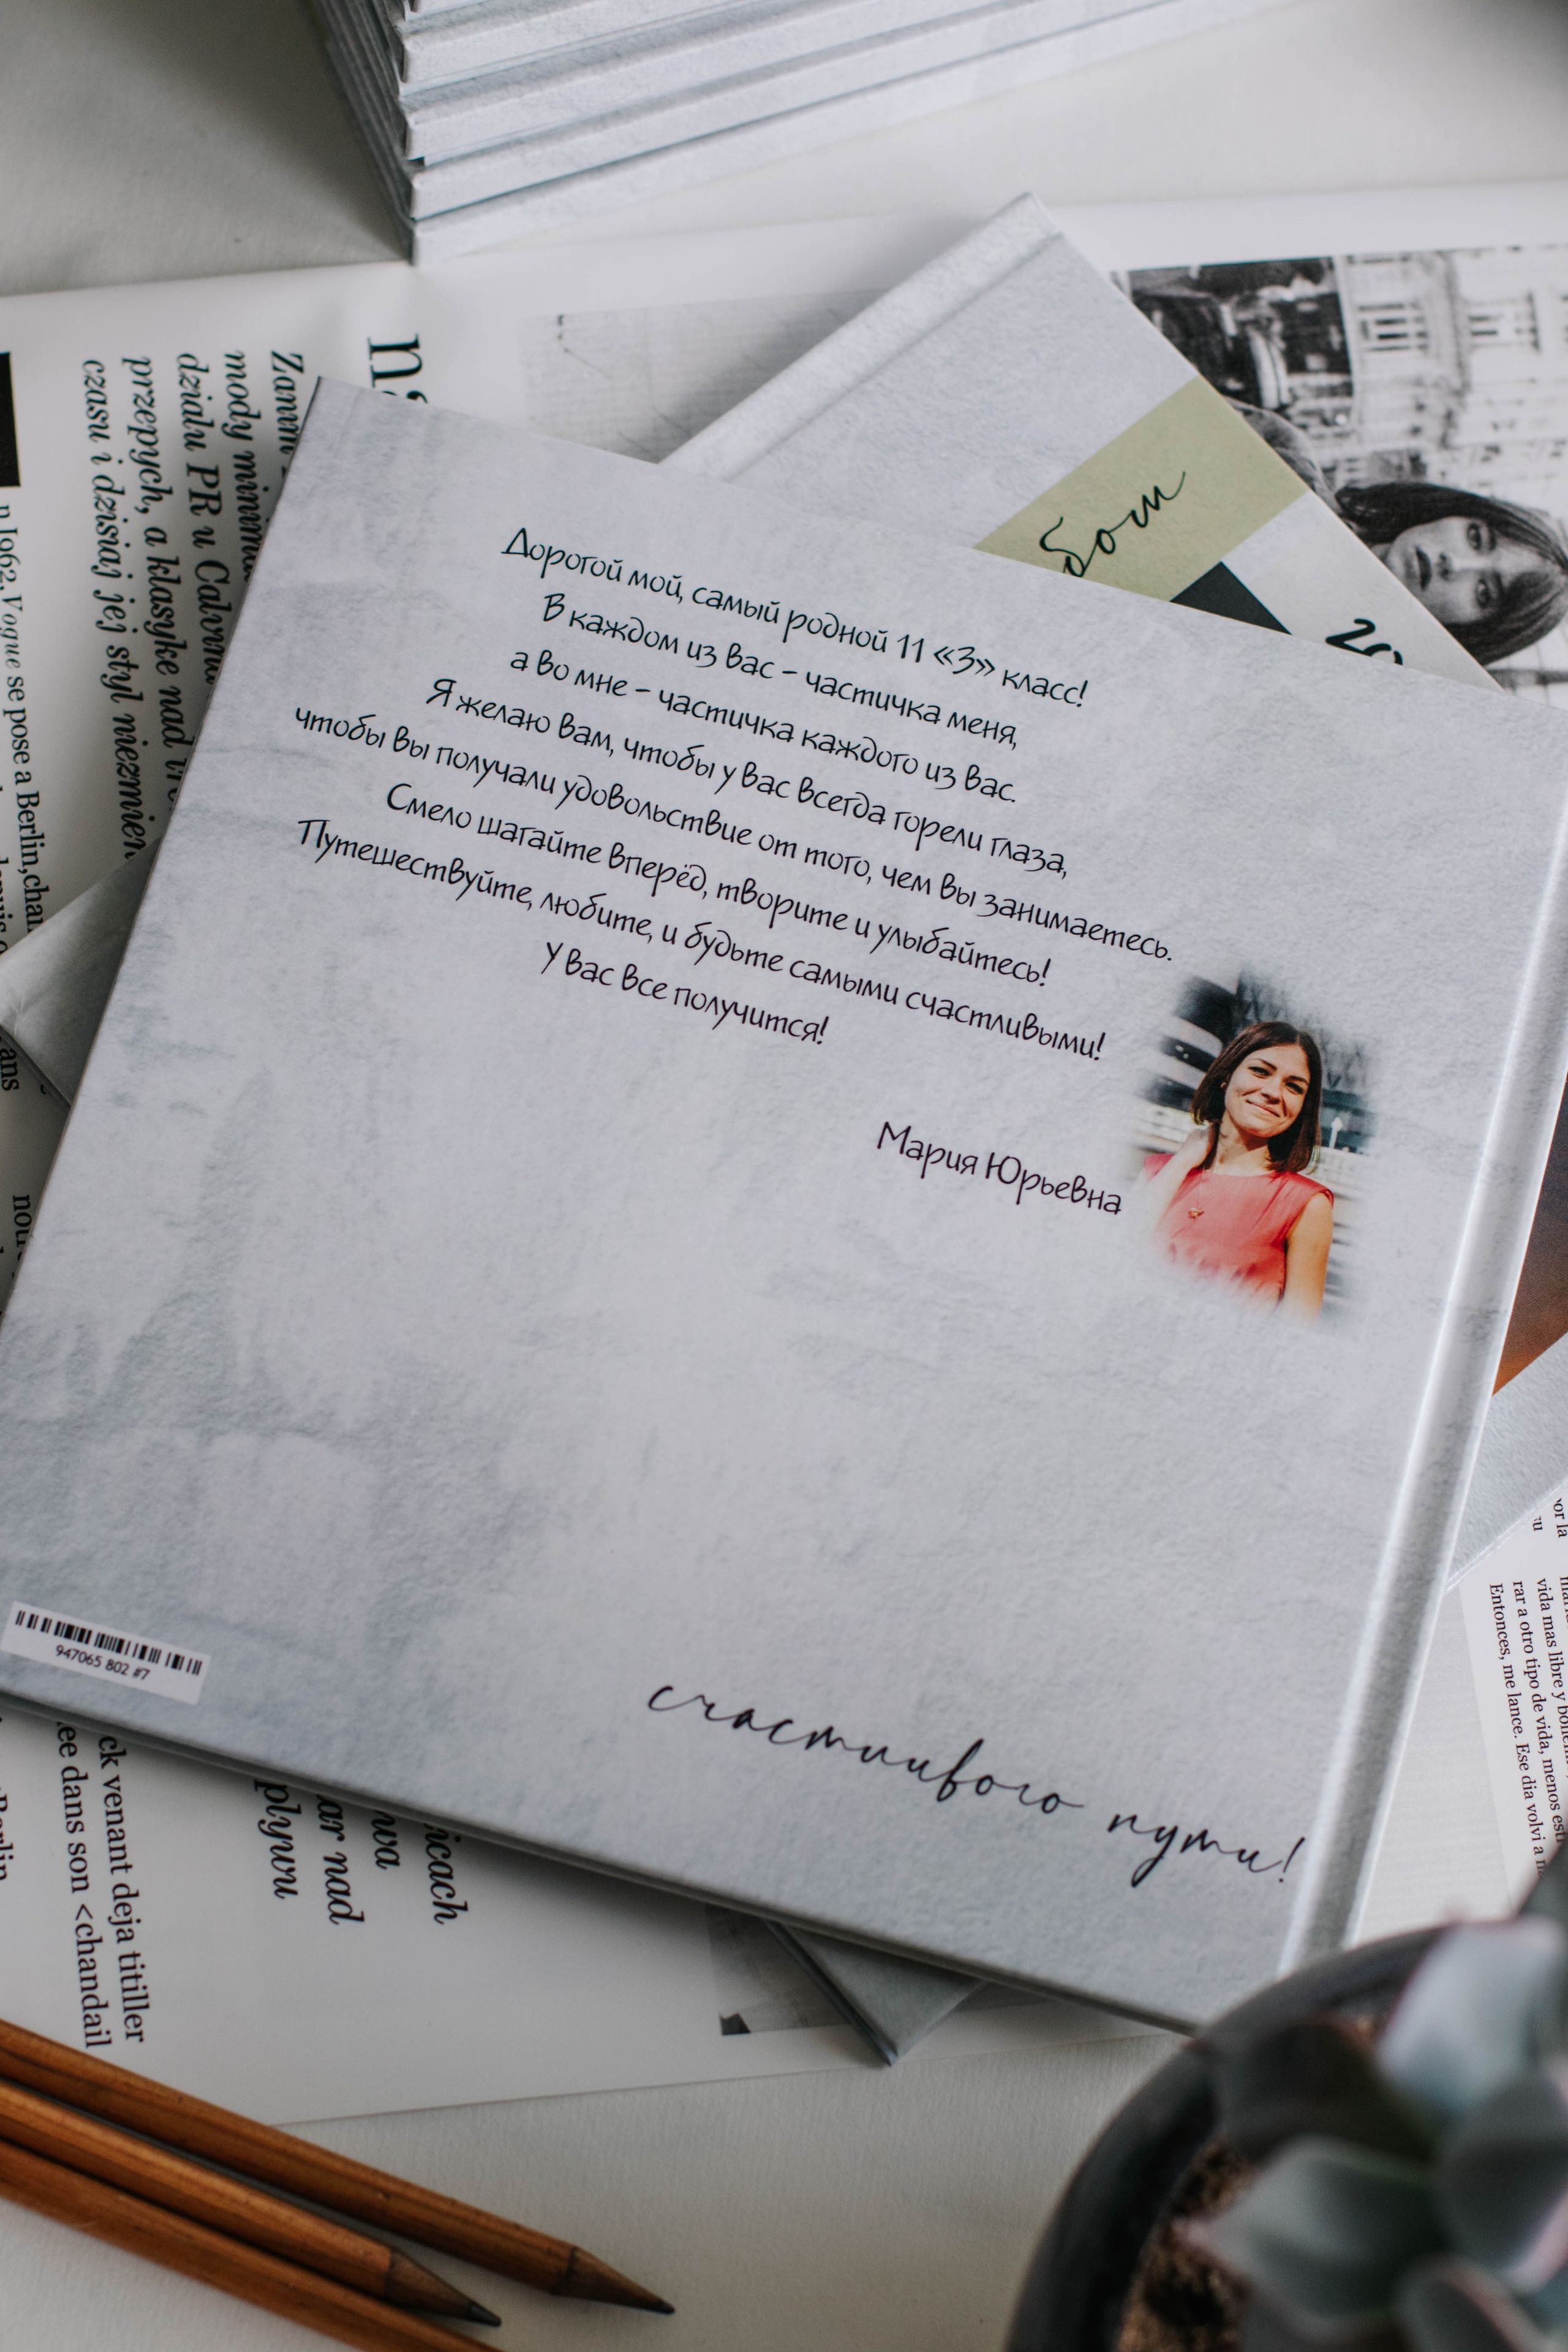 Дорогой мой, самый родной 11 «З» класс!
В каждом из вас - частичка меня,
а во мне - частичка каждого из вас.
Я желаю вам, чтобы у вас всегда горели глаза,
чтобы вы получали удовольствие от того, чем вы занимаетесь.
Смело шагайте вперёд, творите и улыбайтесь!
Путешествуйте, любите, и будьте самыми счастливыми!
У вас все получится!
Мария Юрьевна
счастливого пути!
947065 802 #7
бом
20
mody
działu PR u Calvina
przepych, a klasykę nad
czasu i dzisiaj jej styl
Vogue se pose a Berlin,
ck venant deja titiller
dans son <chandail
plywu
ar nad
por la
vida mas libre y
rar a otro tipo de vida, menos
Entonces, me lance. Ese dia volvi a